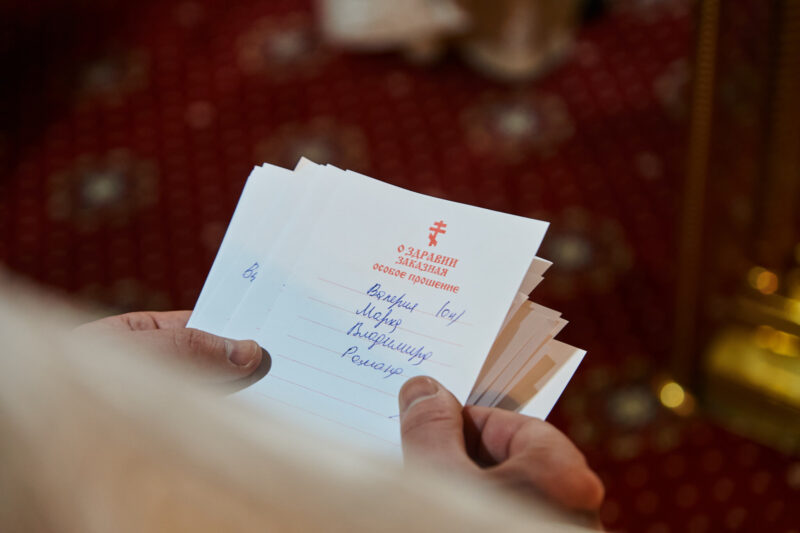 О ЗДРАВИИ
ЗАКАЗНАЯ
особое прошение
Валерия /он/
Марка
Владимира
Романа